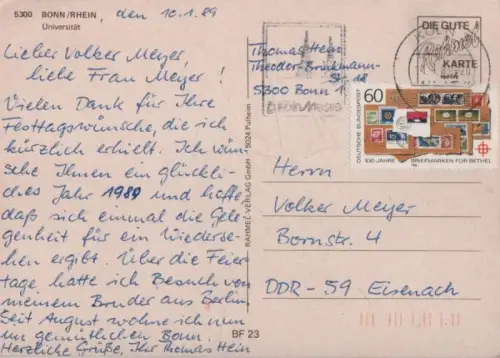 5300 BONN/RHEIN, den 10.1.89
Universität
Lieber Volker Meyer,
liebe Frau Meyer!
Vielen Dank für Ihre
Festtagswünsche, die ich
kürzlich erhielt. Ich wün-
sche Ihnen ein glückli-
ches Jahr 1989 und hoffe,
daß sich einmal die Gele-
genheit für ein Wiederse-
hen ergibt. Über die Feier-
tage hatte ich Besuch von
meinem Bruder aus Berlin.
Seit August wohne ich nun
im gemütlichen Bonn.
Herzliche Grüße, Ihr Thomas Hein
RAHMEL-VERLAG GmbH · 5024 Pulheim
BF 23
Thomas Hein
Theodor-Brinkmann-
Str. 18
5300 Bonn 1
DIE GUTE
Rahmel
KARTE
60
DEUTSCHE BUNDESPOST
100 JAHRE BRIEFMARKEN FÜR BETHEL
Herrn
Volker Meyer
Bornstr. 4
DDR-59 Eisenach